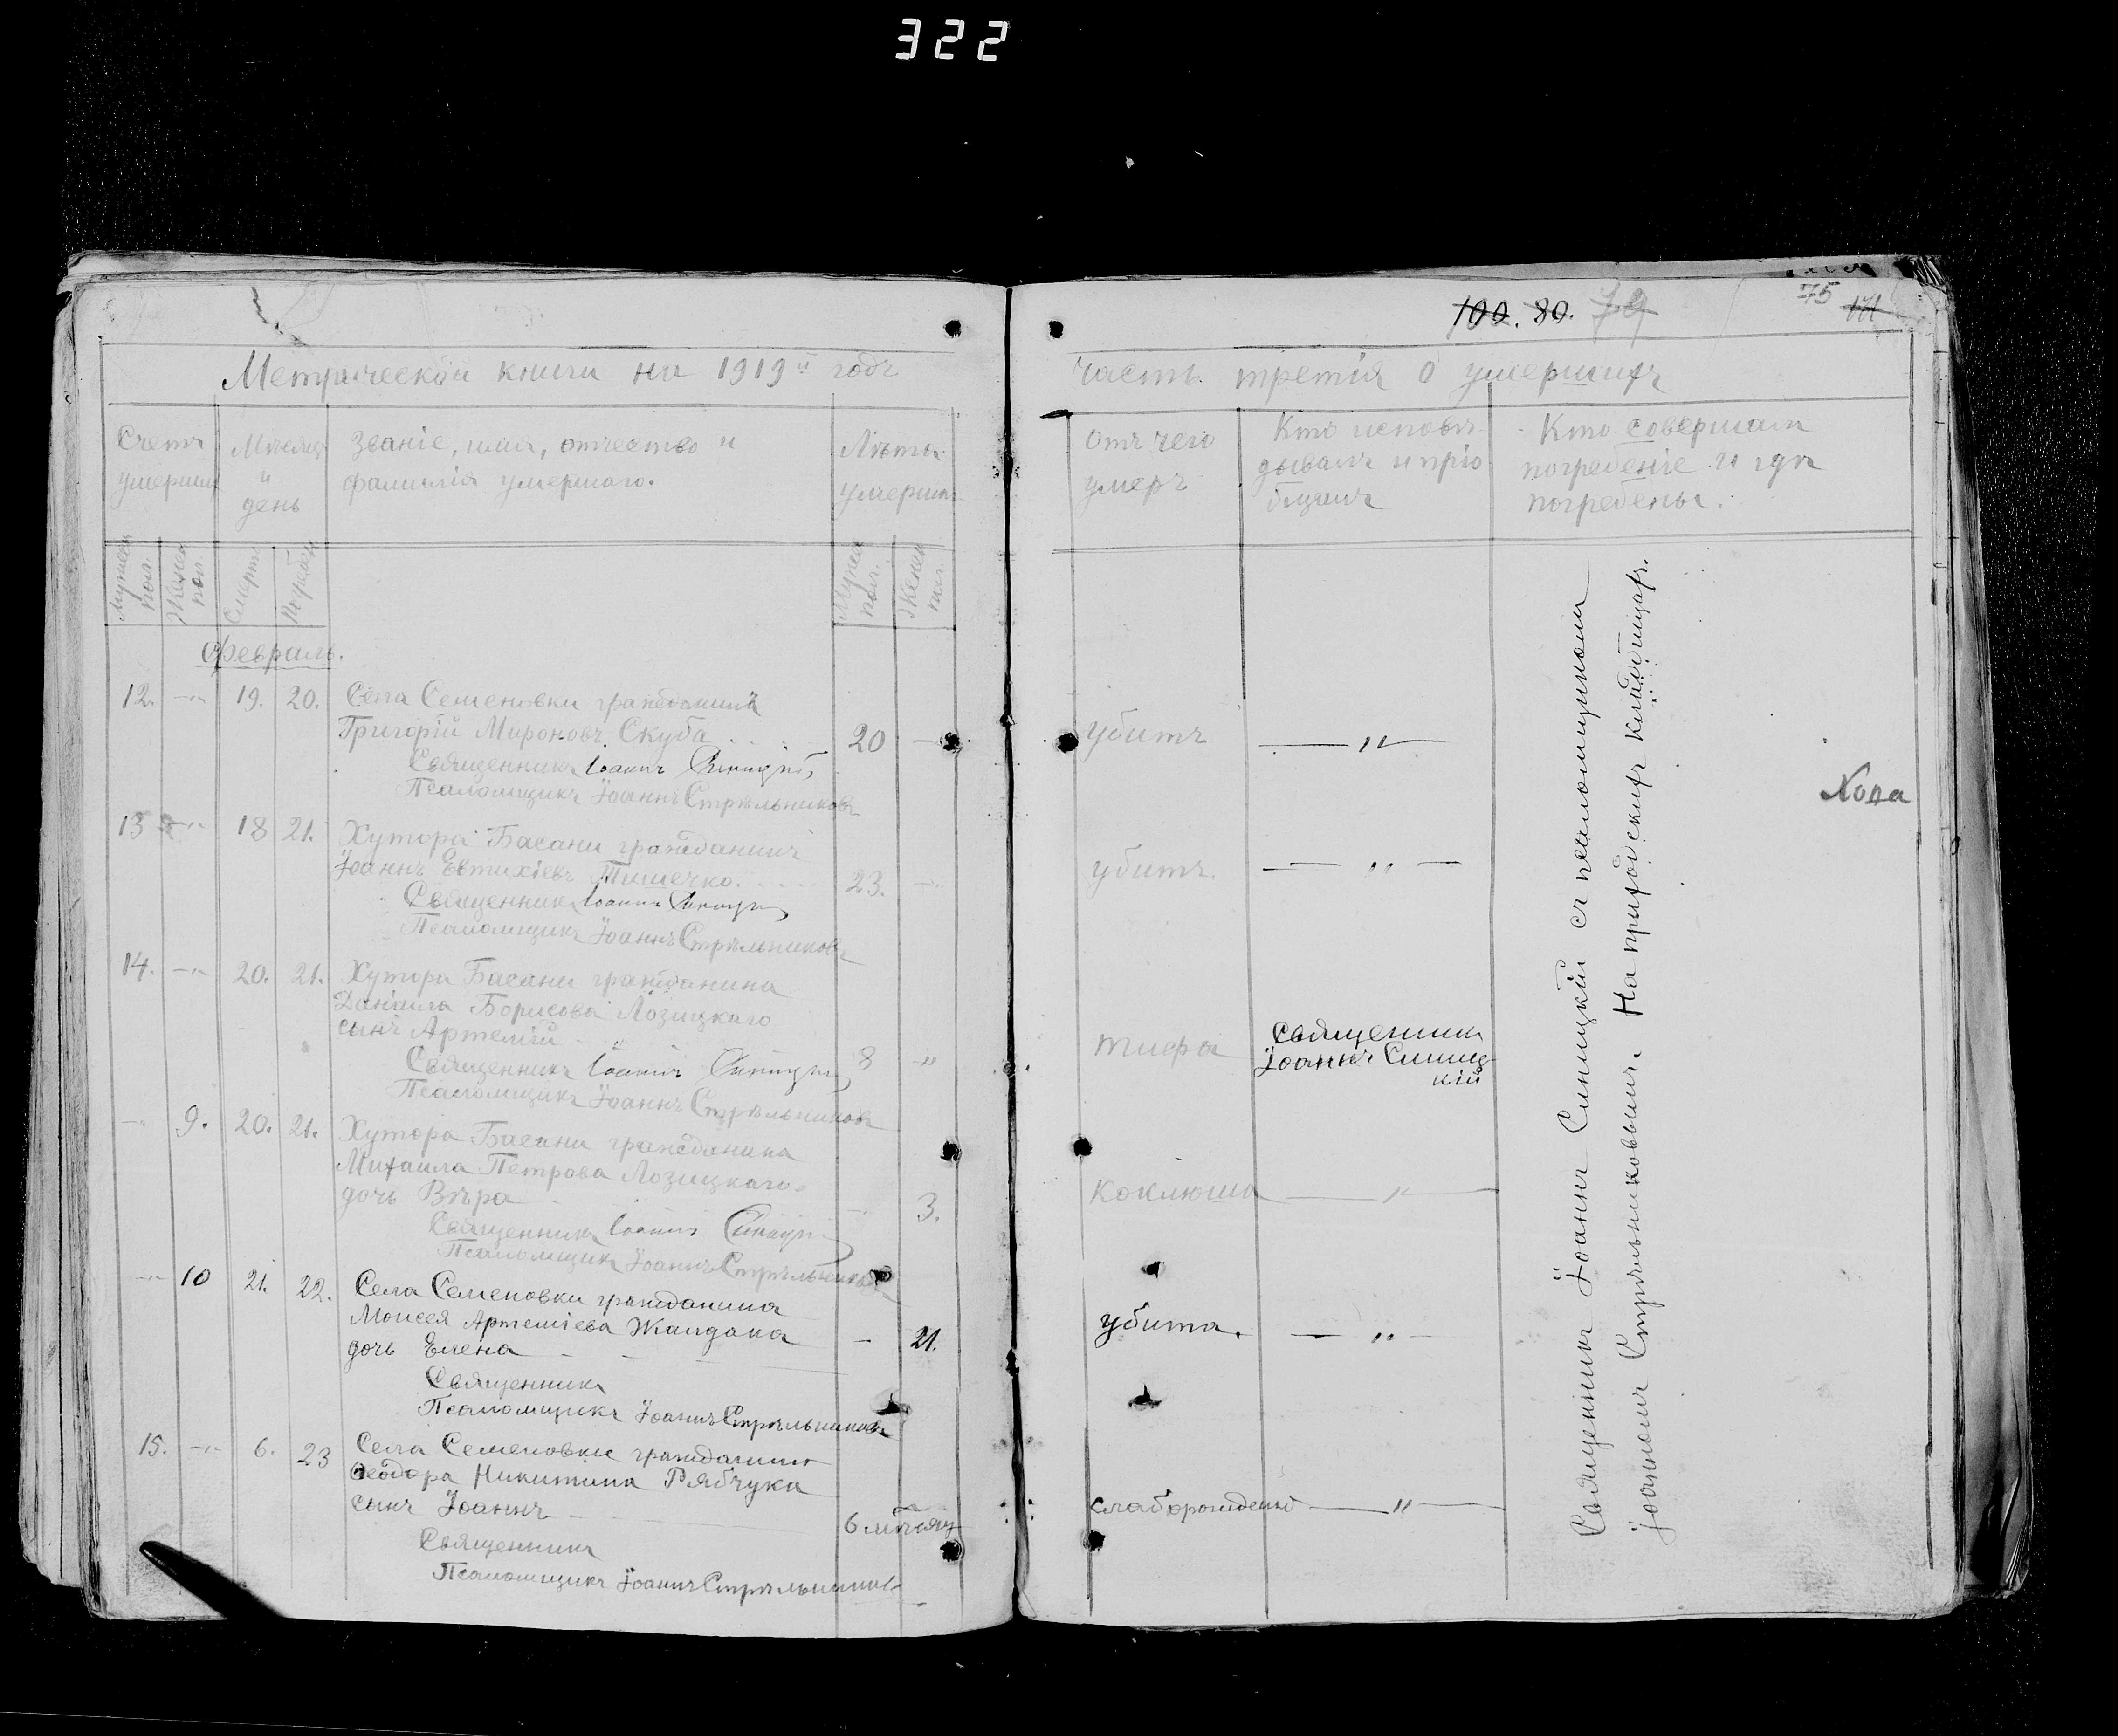 322
100. 80. 79
75 171
Метрической книги на 1919й годъ
Счетъ умершихъ
Мѣсяцъ и день
Званіе, имя, отчество и
фамилія умершаго.
Лѣта
умершаго
Мужеск. пол.
Женск. пол.
Смерти
Погребен.
Мужеск. пол.
Женск. пол.
Февраль.
12. —"— 19. 20. Села Семеновки гражданинъ
Григорій Мироновъ Скуба . . . 20 —
Священникъ Іоаннъ Синицкій
Псаломщикъ Іоаннъ Стрѣльниковъ
13 —"— 18 21. Хутора Басани гражданинъ
Іоаннъ Евтихіевъ Тимечко. . . . . 23. —"—
Священникъ Іоаннъ Синицкій
Псаломщикъ Іоаннъ Стрѣльниковъ
14. —"— 20. 21. Хутора Басани гражданина
Даніила Борисова Лозицкаго
сынъ Артемій 8 —"
Священникъ Іоаннъ Синицкій
Псаломщикъ Іоаннъ Стрѣльниковъ
—"— 9. 20. 21. Хутора Басани гражданина
Михаила Петрова Лозицкаго
дочь Вѣра — 3.
Священникъ Іоаннъ Синицкій
Псаломщикъ Іоаннъ Стрѣльниковъ
—"— 10 21. 22. Села Семеновки гражданина
Моисея Артеміева Жандака
дочь Елена — 21.
Священникъ
Псаломщикъ Іоаннъ Стрѣльниковъ
15. —"— 6. 23 Села Семеновки гражданина
Ѳеодора Никитина Рябчука
сынъ Іоаннъ 6 мѣсяц
Священникъ
Псаломщикъ Іоаннъ Стрѣльниковъ
часть третія о умершихъ
Отъ чего
умеръ
Кто исповѣ-
дывалъ и прiо-
бщалъ
Кто совершалъ
погребеніе и гдѣ
погребены.
убитъ —"—
убитъ. —"—
тифа Священникъ
Іоаннъ Синиц-
кій
коклюша —"—
убита. —"—
слаборожденъ —"—
Священникъ Іоаннъ Синицкій съ псаломщикомъ
Іоанномъ Стрѣльниковымъ. На приходскихъ кладбищахъ.